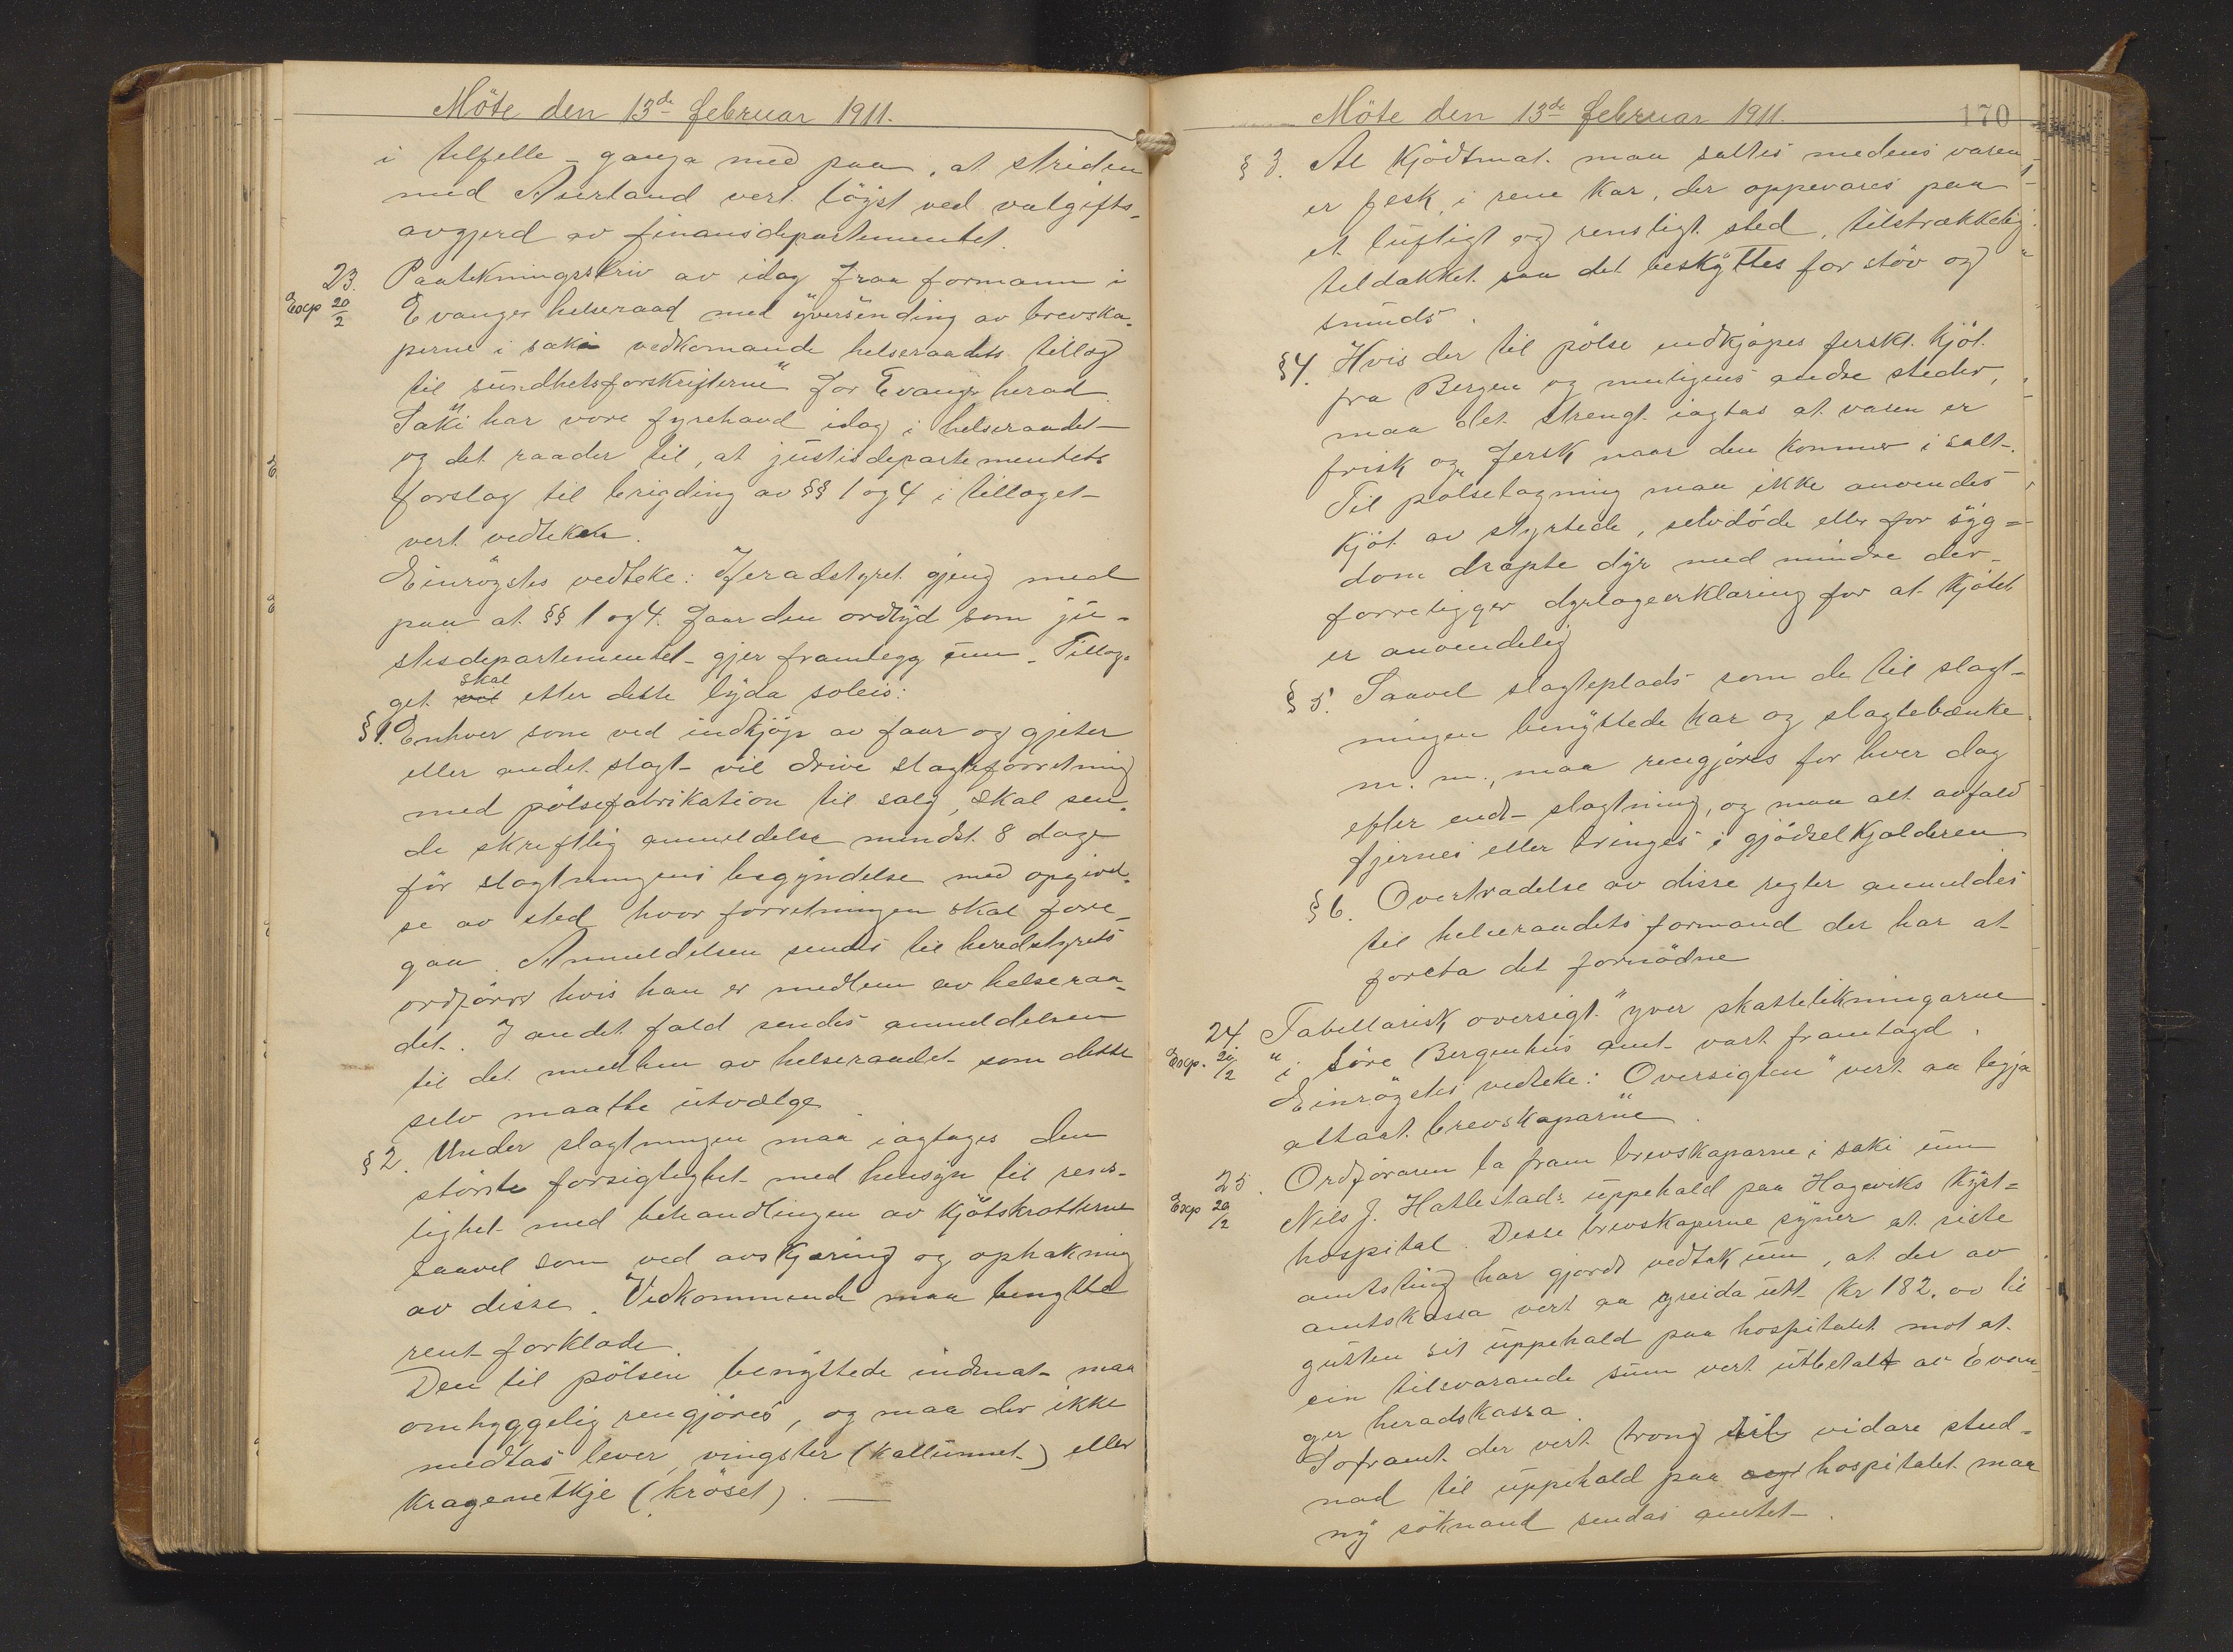 Möte den 13de februar 1911.
i tilfelle - ganga med paa, at striden
med Aurland vert löyst ved valgifts-
avgjerd av finansdepartementet.
23. Paateikningsskriv av idag fraa formann i
Exp 20/2 Evanger helseraad med yversending av brevska-
perne i saki vedkomande helseraadets tillæg
til "sundhetsforskrifterne" for Evanger herad.
Saki har vore fyrehavd idag i helseraadet
og det raader til, at justisdepartementets
forslag til brigding av §§ 1 og 4 i tillaget
vert vedteken.
Einrögstes vedteke: Heradstyret gjeng med
paa at §§ 1 og 4. faar den ordlyd som ju-
stisdepartementet gjer framlegg um. Tillæg-
get skal etter dette lyda soleis:
§ 1. Enhver som ved indkjöp av faar og gjeter
eller andet slagt vil drive slagteforretning
med pölsefabrikation til salg, skal sen-
de skriftlig anmeldelse mindst 8 dage
för slagtningens begyndelse med opgivel-
se av sted hvor forretningen skal fore-
gaa. Anmeldelsen sendes til heredstyrets
ordförer hvis han er medlem av helseraa-
det. I andet fald sendes anmeldelsen
til det medlem av helseraadet som dette
selv maatte utvælge.
§ 2. Under slagtningen maa iagtages den
störste forsigtighet med hensyn til rens-
lighet med behandlingen av kjötskrotterne
saavel som ved avskjæring og ophakning
av disse. Vedkommende maa benytte
rent forklæde.
Den til pölsen benyttede indmat maa
omhyggelig rengjöres, og maa der ikke
medtas lever, vingster (kallunnet) eller
kragenetkje (kröset).
Möte den 13de februar 1911. 170
§ 3. Al kjödtmat maa saltes medens varen
er fesk, i rene kar, der oppevares paa
et luftigt og rensligt sted, tilstrækkelig
tildækket saa det beskyttes for stöv og
smuds.
§ 4. Hvis der til pölse indkjöpes ferskt kjöt
fra Bergen og muligens andre steder,
maa det strengt iagtas at varen er
frisk og fersk naar den kommer i salt.
Til pölselagning maa ikke anvendes
kjöt av styrtede, selvdöde eller for syg-
dom dræpte dyr med mindre der
forreligger dyrlægeerklæring for at kjötet
er anvendelig
§ 5. Saavel slagteplads som de til slagt-
ningen benyttede kar og slagtebænke
m. m., maa rengjöres for hver dag
efter endt slagtning, og maa alt avfald
fjernes eller bringes i gjödselkjælderen
§ 6. Overtrædelse av disse regler anmeldes
til helseraadets formand der har at
foreta det fornödne
24. "Tabellarisk oversigt" yver skattelikningarne
Exp. 20/2 i Söre Bergenhus amt vart framlagd.
Einrögstes vedteke: "Oversigten" vert aa legja
attaat brevskaparne.
25. Ordföraren la fram brevskaparne i saki um
Exp 20/2 Nils J. Hatlestads uppehald paa Hagaviks kyst-
hospital. Desse brevskaperne syner at siste
amtsting har gjordt vedtak um, at der av
amtskassa vert aa greida utt kr 182,00 til
gutten sit uppehald paa hospitalet mot at
ein tilsvarande sum vert utbetalt av Evan-
ger heradskassa.
Soframt der vert trong til vidare stud-
nad til uppehald paa hospitalet maa
ny söknand sendas amtet.